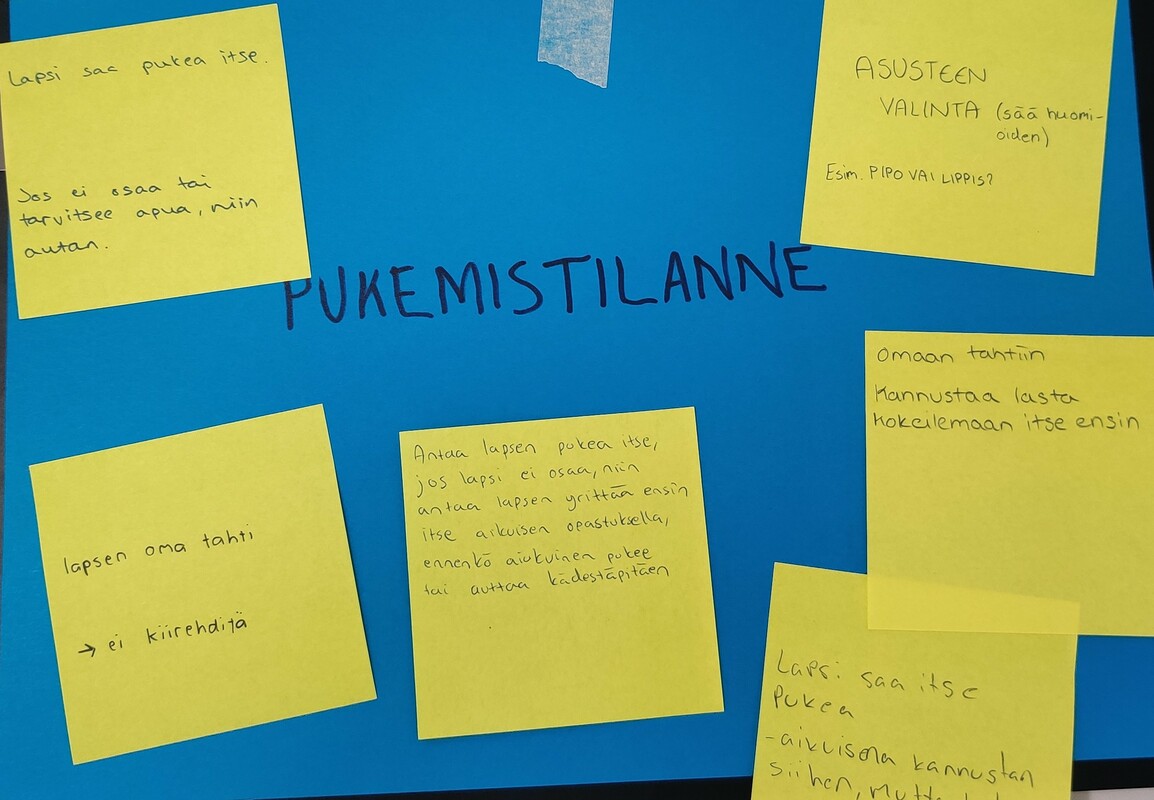 Lapsi saa pukea itse.
Jos ei osaa tai
tarvitsee apua, niin
autan.
ASUSTEEN
VALINTA (sää huomi-
oiden)
Esim. PIPO VAI LIPPIS?
PUKEMISTILANNE
omaan tahtiin
Kannustaa lasta
kokeilemaan itse ensin
lapsen oma tahti
→ ei kiirehditä
Antaa lapsen pukea itse,
jos lapsi ei osaa, niin
antaa lapsen yrittää ensin
itse aikuisen opastuksella,
ennenkö aiukuinen pukee
tai auttaa kädestäpitäen
Lapsi saa itse
pukea
-aikuisena kannustan
siihen,